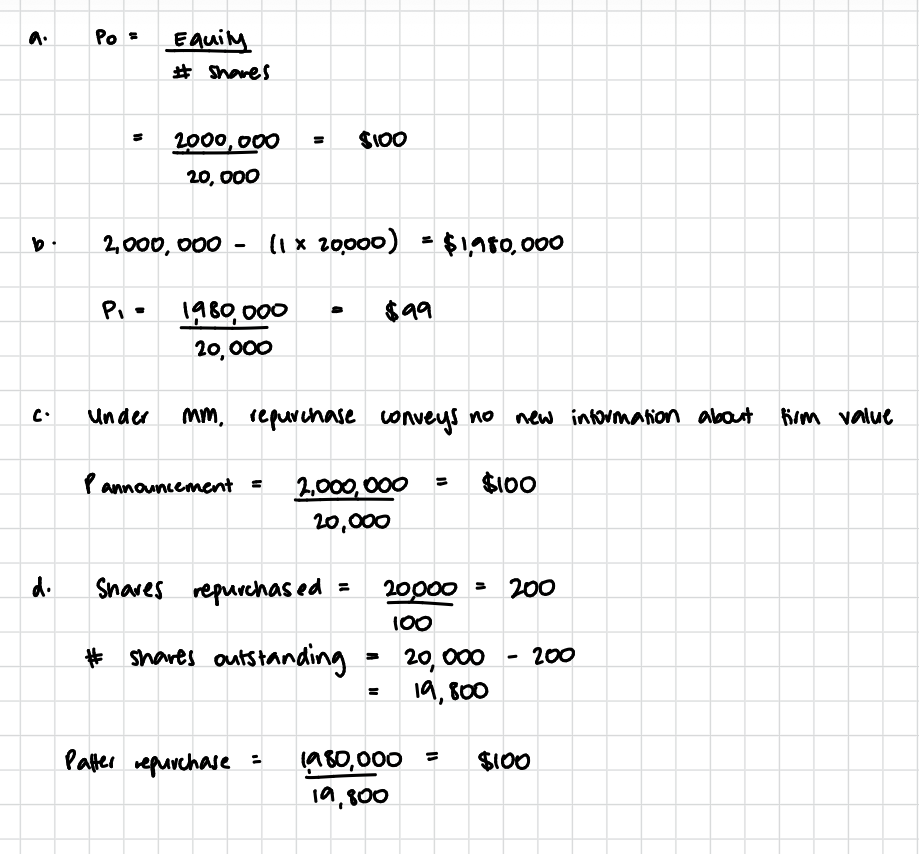 a. P0 = Equity / # shares
= 2,000,000 / 20,000 = $100
b. 2,000,000 - (1 x 20,000) = $1,980,000
P1 = 1,980,000 / 20,000 = $99
c. Under MM, repurchase conveys no new information about firm value
P announcement = 2,000,000 / 20,000 = $100
d. Shares repurchased = 20,000 / 100 = 200
# shares outstanding = 20,000 - 200
= 19,800
P after repurchase = 1,980,000 / 19,800 = $100